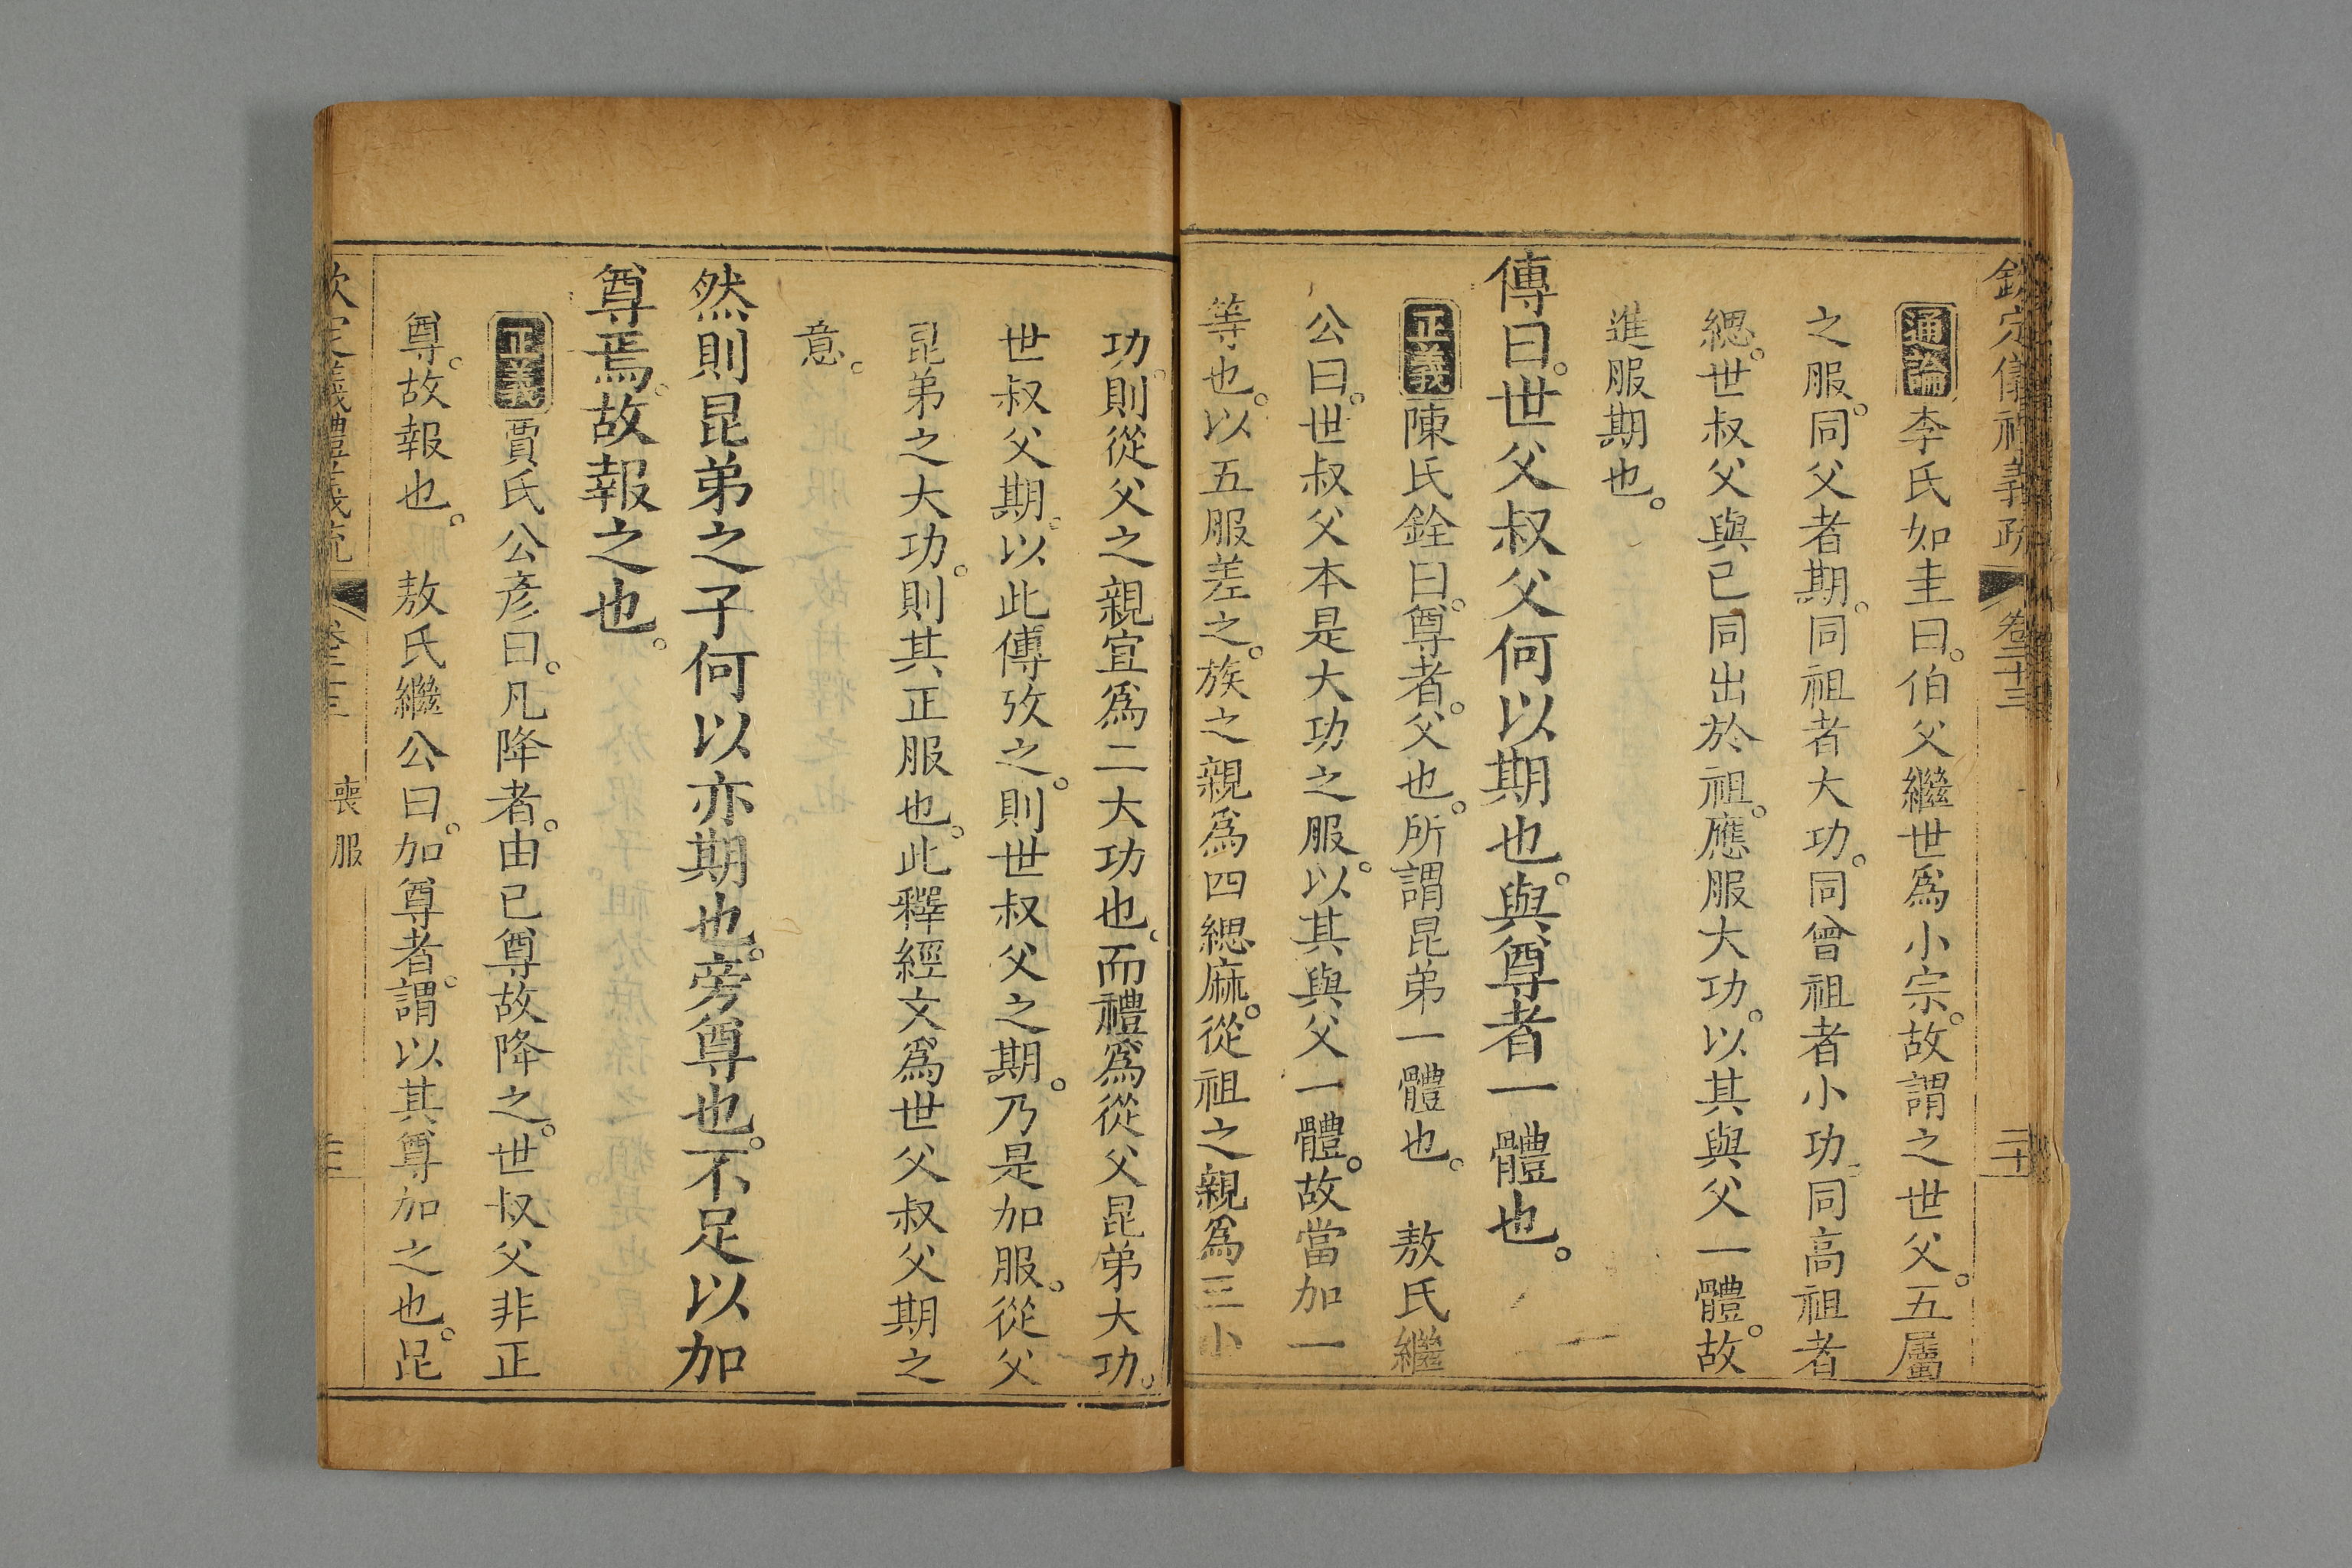 欽定儀禮義疏 卷二十三 二十
通論李氏如圭曰。伯父繼世爲小宗。故謂之世父。五屬
之服。同父者期。同祖者大功。同曾祖者小功。同高祖者
緦。世叔父與已同出於祖。應服大功。以其與父一體。故
進服期也。
傳曰。世父叔父何以期也。與尊者一體也。
正義陳氏銓曰。尊者。父也。所謂昆弟一體也。 敖氏繼
公曰。世叔父本是大功之服。以其與父一體。故當加一
等也。以五服差之。族之親爲四緦麻。從祖之親爲三小
功。則從父之親宜爲二大功也、而禮爲從父昆弟大功。
世叔父期。以此傳攷之。則世叔父之期。乃是加服。從父
昆弟之大功。則其正服也。此釋經文爲世父叔父期之
意。
然則昆弟之子何以亦期也。旁尊也。不足以加
尊焉。故報之也。
正義賈氏公彥曰。凡降者。由已尊故降之。世叔父非正
尊。故報也。 敖氏繼公曰。加尊者。謂以其尊加之也。昆
欽定義禮義疏 卷二十三 喪服